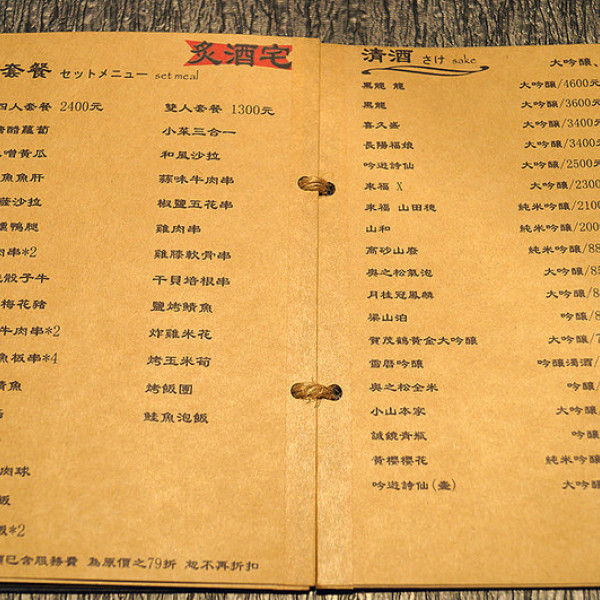 炙酒宅
套餐 セットメニュー set meal
四人套餐 2400元
醋蘿蔔
噌黃瓜
魚魚肝
沙拉
燻鴨腿
肉串*2
骰子牛
梅花豬
牛肉串*2
魚板串*4
魚
肉球
飯
*2
雙人套餐 1300元
小菜三合一
和風沙拉
蒜味牛肉串
椒鹽五花串
雞肉串
雞膝軟骨串
干貝培根串
鹽烤鯖魚
炸雞米花
烤玉米筍
烤飯團
鮭魚泡飯
已含服務費 為原價之79折 恕不再折扣
清酒 さけ sake 大吟釀、
黑龍 龍 大吟釀/4600元
黑龍 大吟釀/3600元
喜久盛 大吟釀/3400元
長陽福娘 大吟釀/3400
吟遊詩仙 大吟釀/2500
來福 X 大吟釀/2300
來福 山田穗 純米吟釀/2100
山和 純米吟釀/200
高砂山廢 純米吟釀/88
與之松氣泡 大吟釀/8
月桂冠鳳麟 大吟釀/8
梁山泊 吟釀/8
賀茂鶴黃金大吟釀 大吟釀/7
雪曆吟釀 吟釀濁酒/
與之松全米 吟釀/
小山本家 大吟釀/
誠鏡青瓶 吟釀
黃櫻櫻花 純米吟釀
吟遊詩仙(壹) 大吟釀